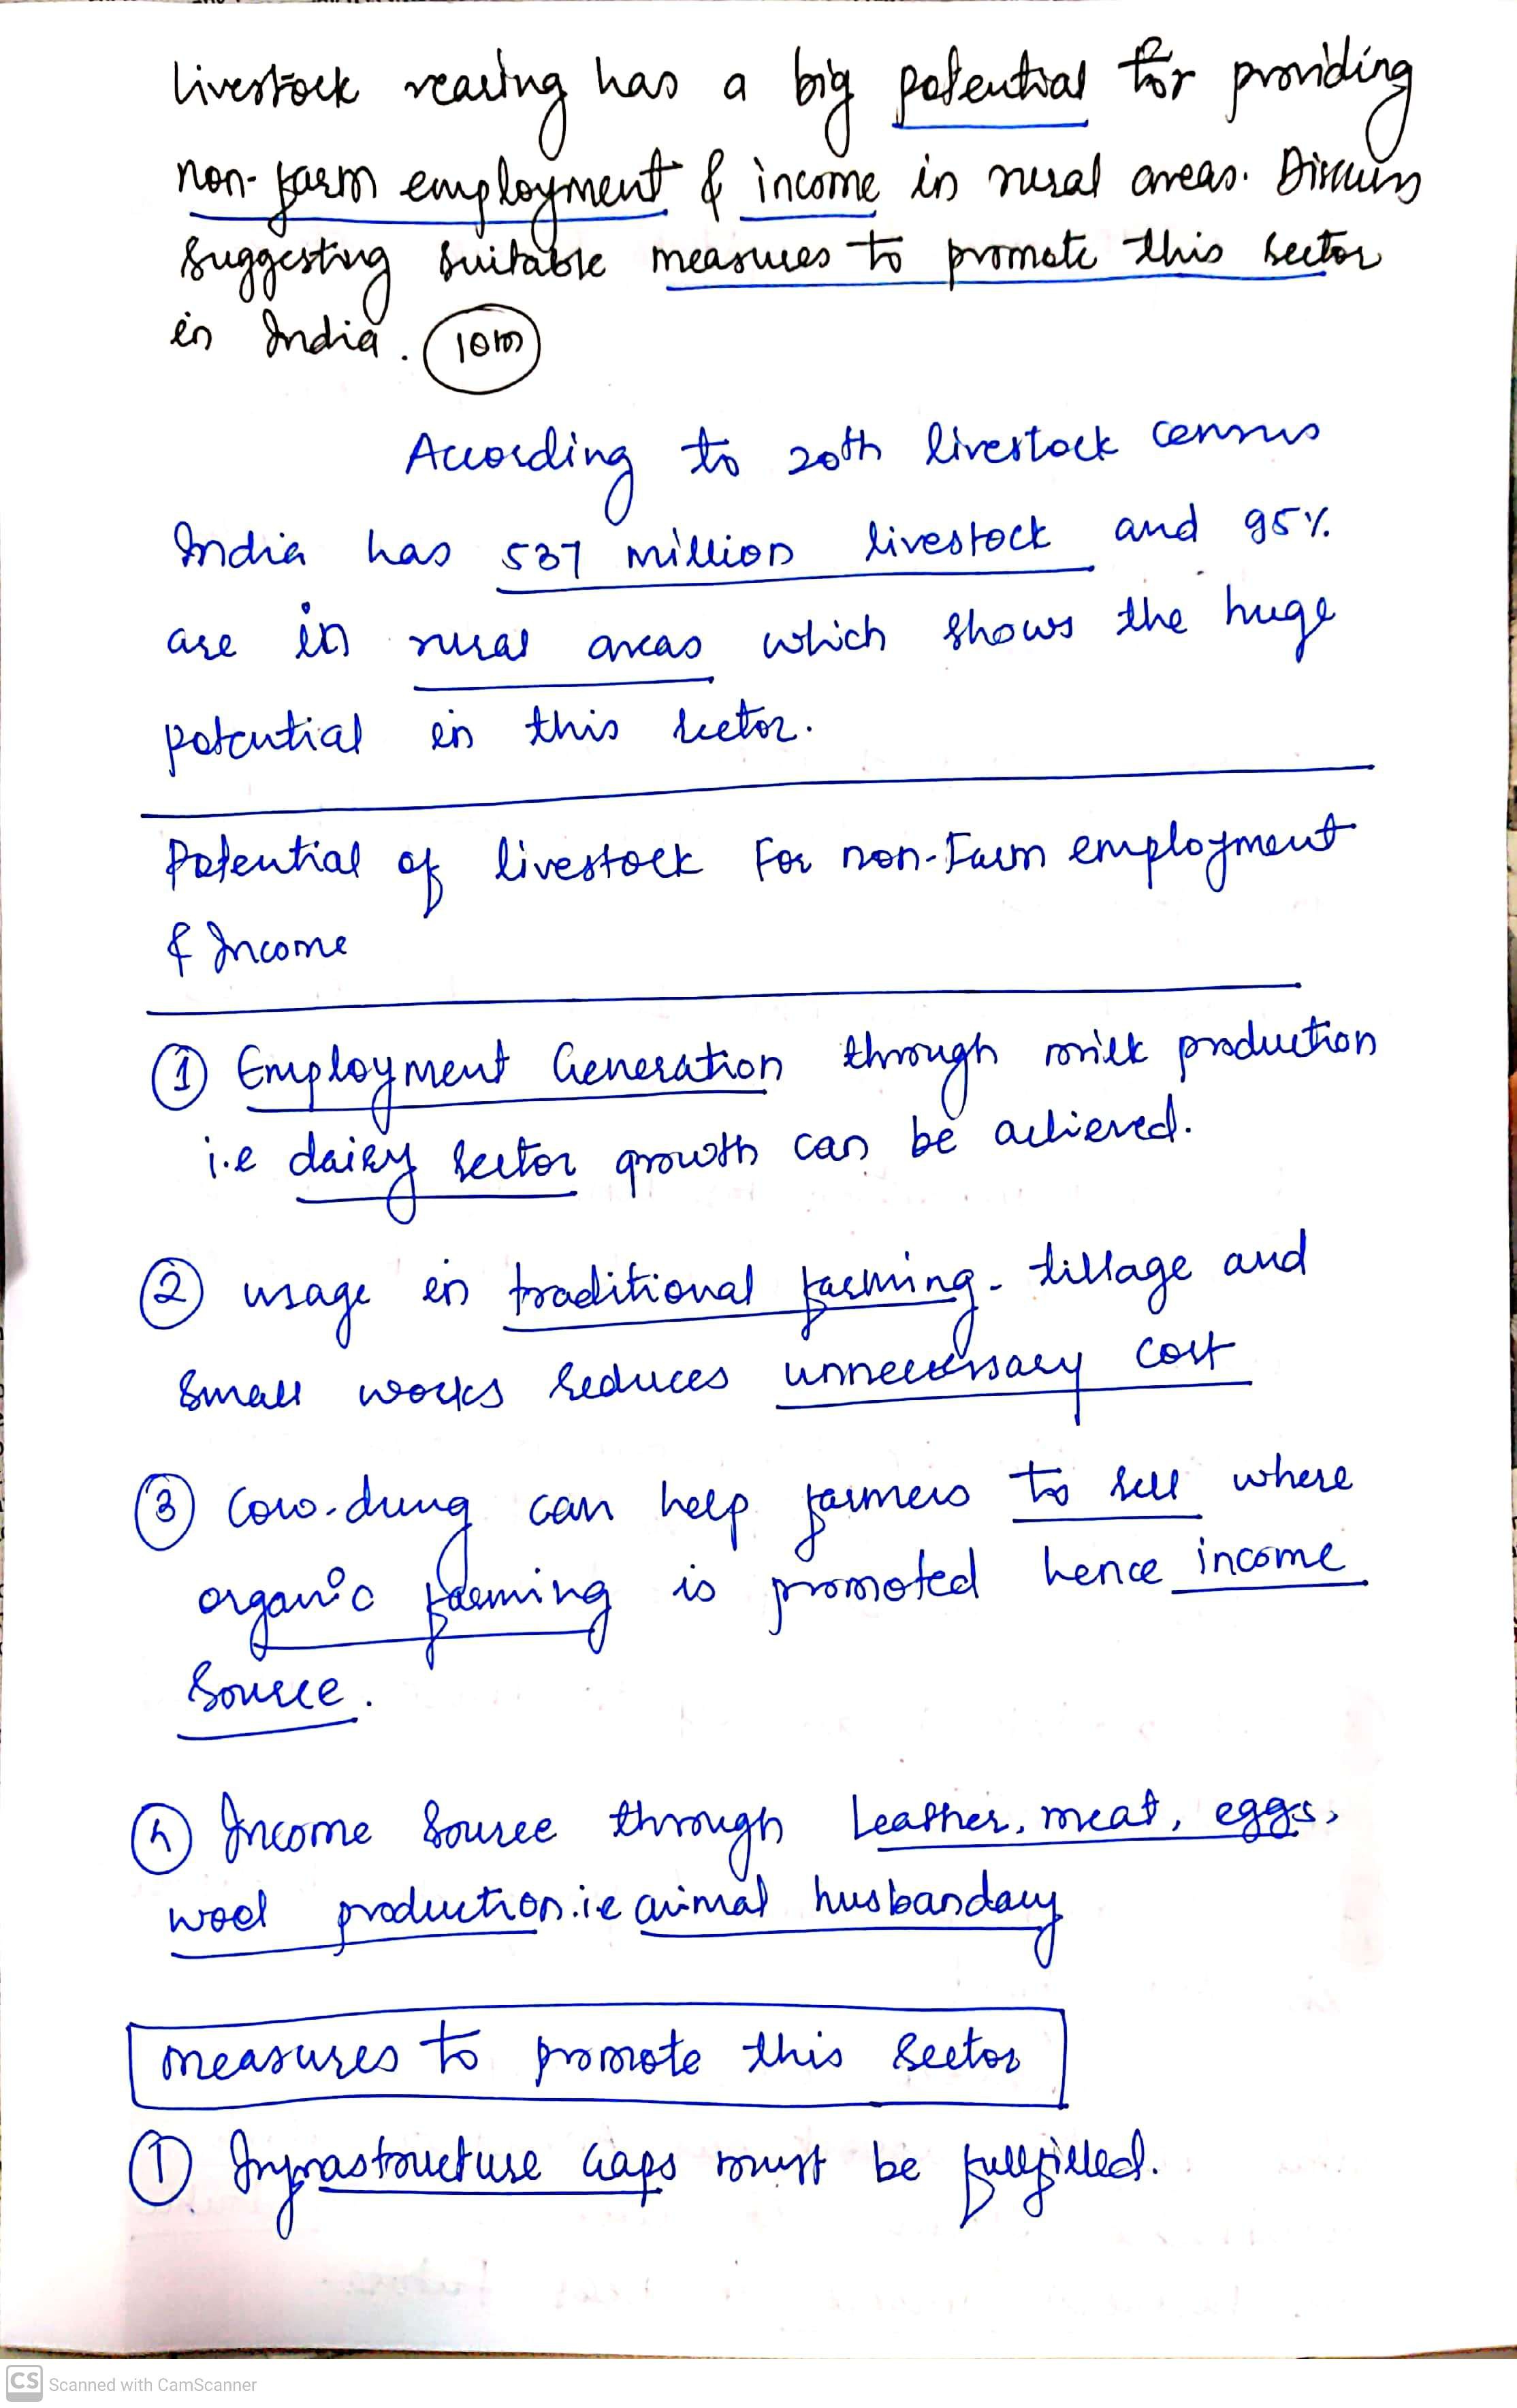 livestock rearing has a big potential for providing
non-farm employment & income in rural areas. Discuss
suggesting suitable measures to promote this sector
in India. 10m
According to 20th livestock census
India has 537 million livestock and 95%
are in rural areas which shows the huge
potential in this sector.
Potential of livestock For non-Farm employment
& Income
① Employment Generation through milk production
i.e dairy sector growth can be achieved.
② usage in traditional farming - tillage and
small works reduces unnecessary cost
③ Cow-dung can help farmers to sell where
organic farming is promoted hence income
source.
④ Income source through Leather, meat, eggs,
wool production.ie animal husbandary
measures to promote this sector
① Infrastructure Gaps must be fullfilled.
CS Scanned with CamScanner